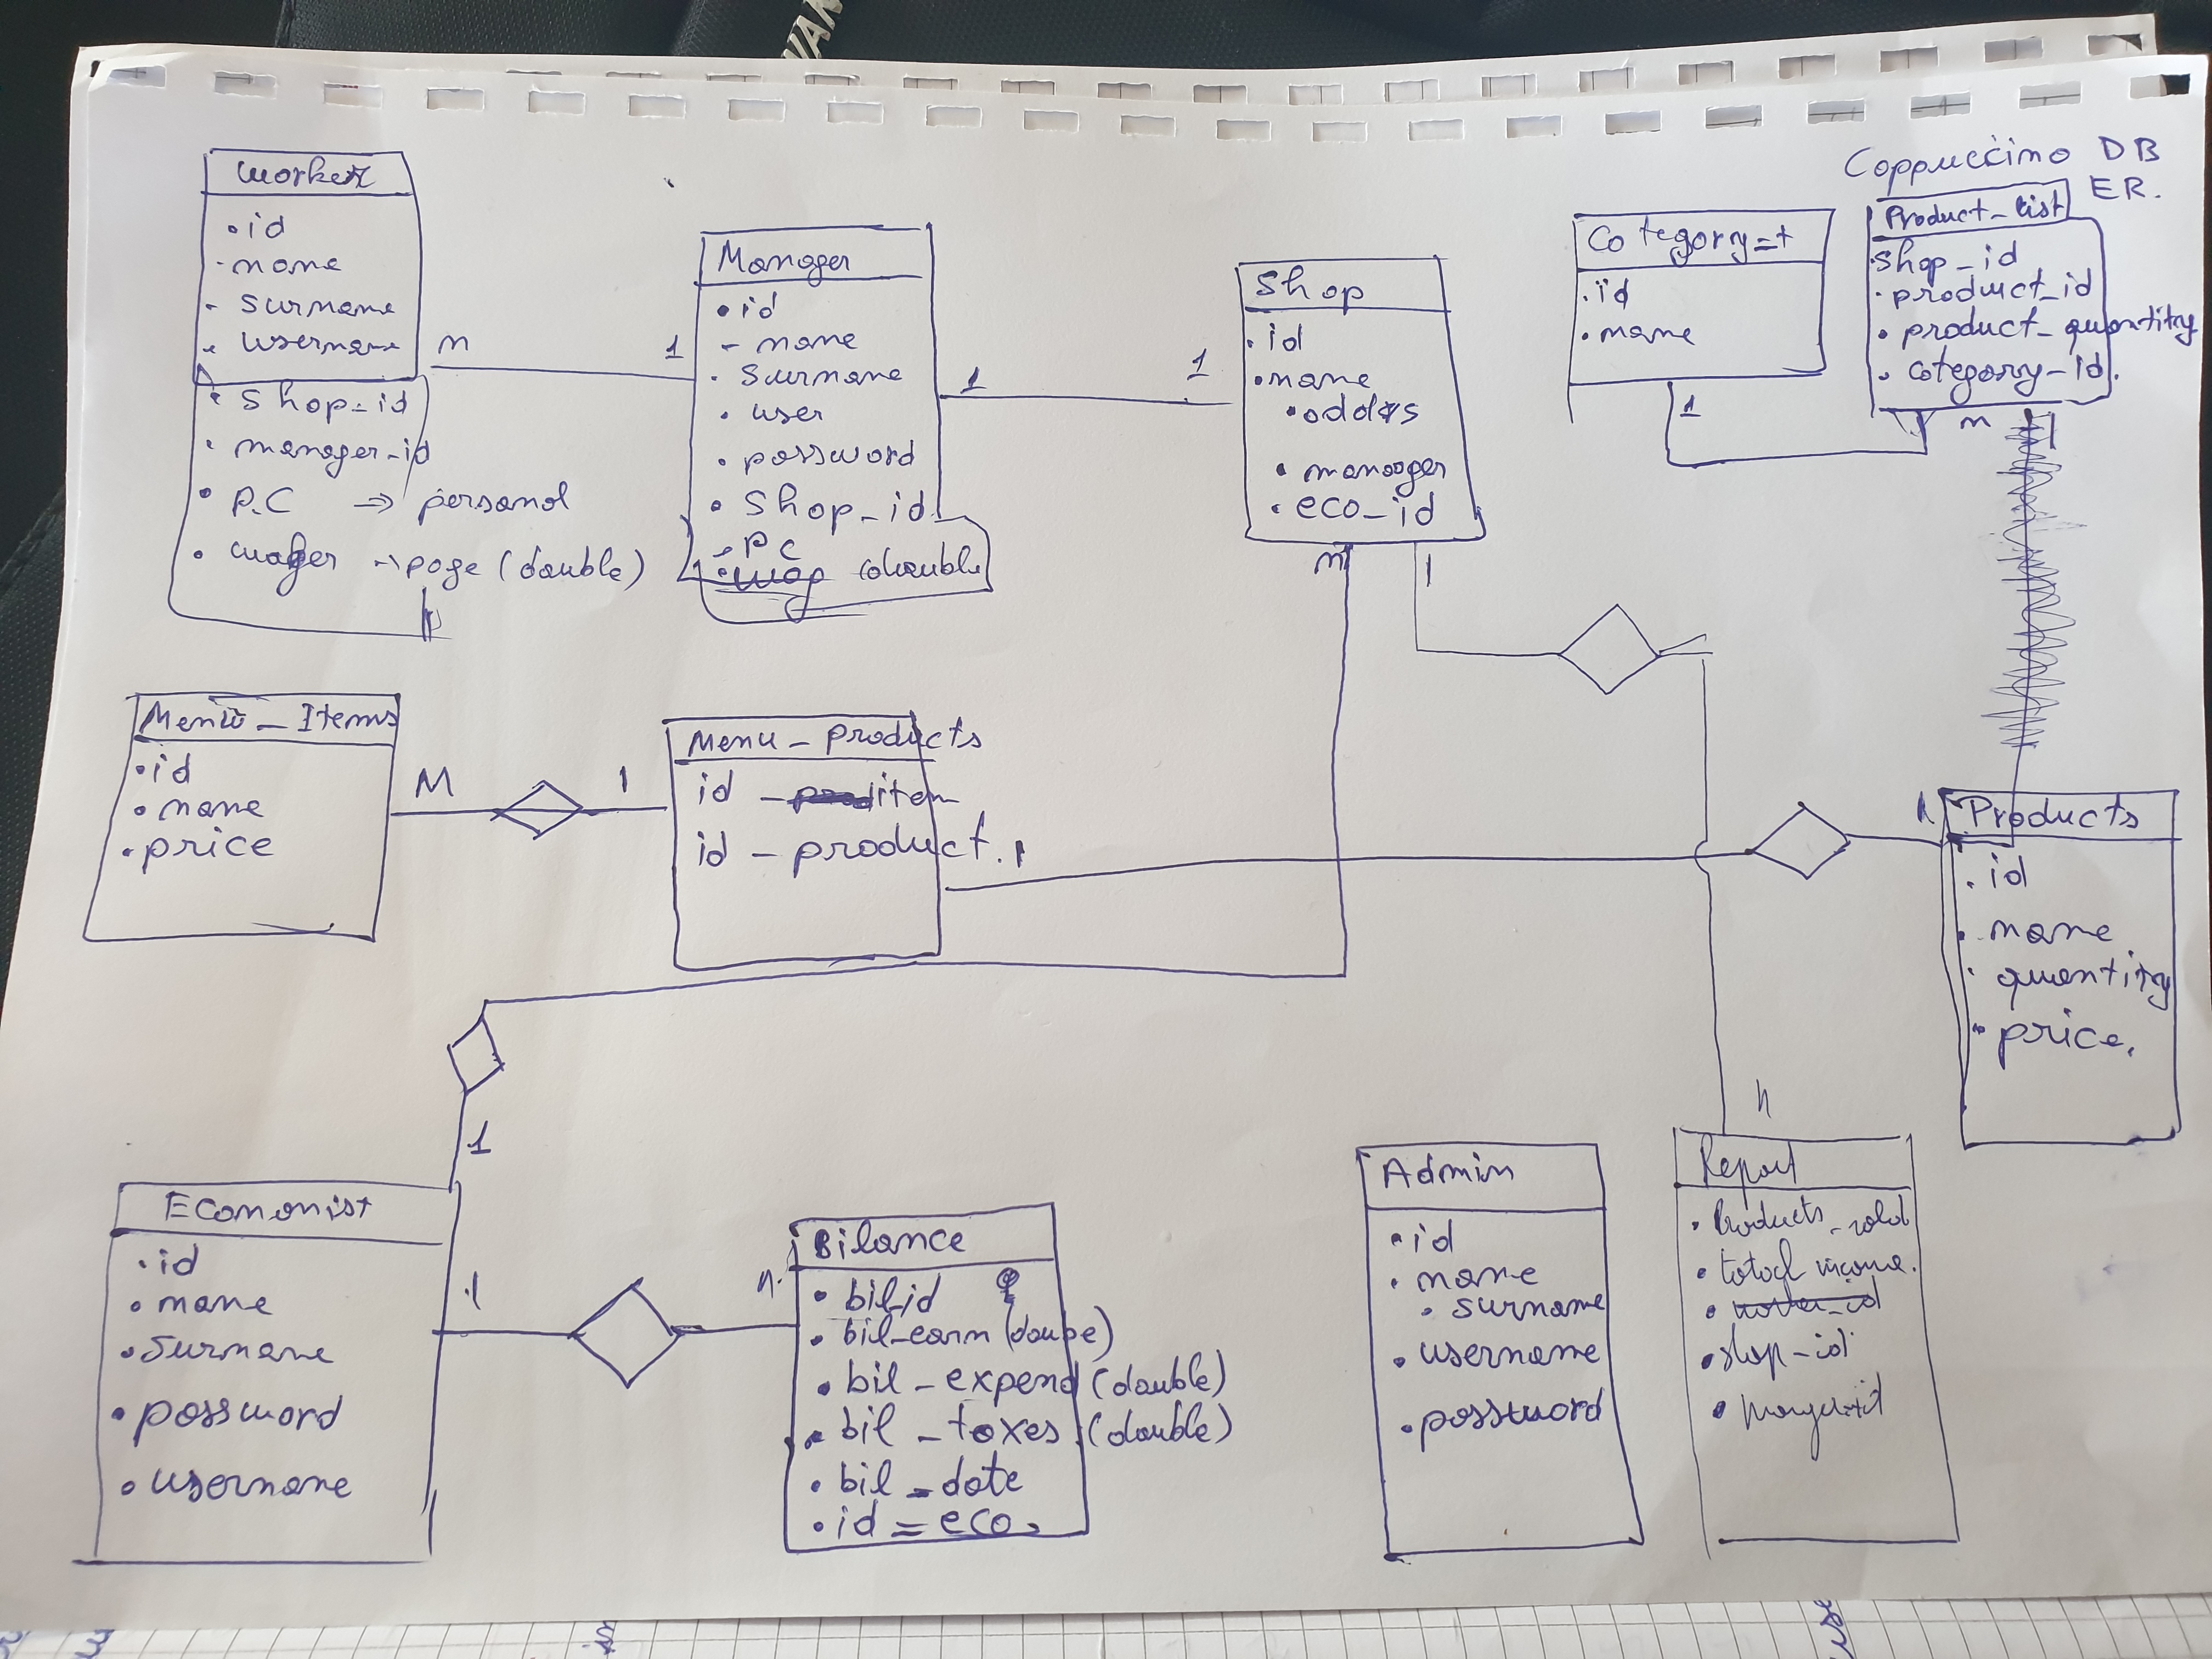 Coppuccino DB
ER.
Worker
id
name
surname
username
shop_id
manager_id
P.C => personal
wages -> page (double)
m
1
Manager
id
name
surname
user
password
shop_id
PC
wap (double)
1
1
Shop
id
name
addrs
manager
eco_id
m
1
Category
id
name
1
Product_list
shop_id
product_id
product_quantity
category_id.
m
Menu_Items
id
name
price
M
1
Menu_products
id_item
id_product.
1
Products
id
name
quantity
price.
Economist
id
name
surname
password
username
1
1
n
Bilance
bil_id
bil_earn (double)
bil_expend (double)
bil_taxes (double)
bil_date
id_eco.
Admin
id
name
surname
username
password
n
Report
products_sold
total income.
shop_id
VAN